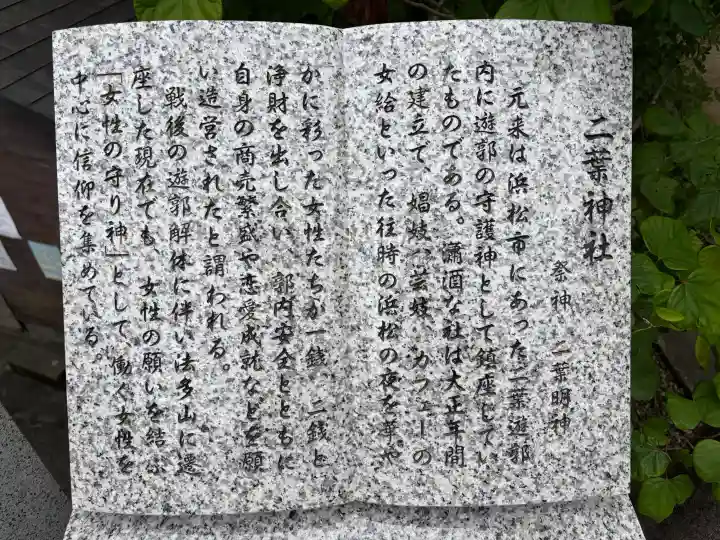 二葉神社
祭神 二葉明神
元来は浜松市にあった二葉遊郭
内に遊郭の守護神として鎮座してい
たものである。瀟洒な社は大正年間
の建立で、娼妓、芸妓、カフェーの
女給といった往時の浜松の夜を華や
かに彩った女性たちが一銭、二銭と
浄財を出し合い、郭内安全とともに
自身の商売繁盛や恋愛成就などを願
い造営されたと謂われる。
戦後の遊郭解体に伴い法多山に遷
座した現在でも、女性の願いを結ぶ
「女性の守り神」として、働く女性を
中心に信仰を集めている。